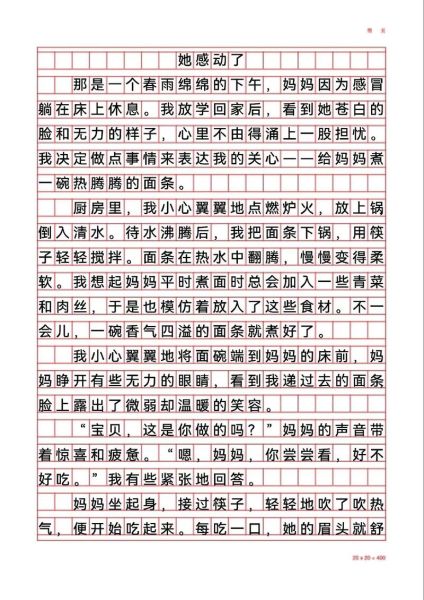 她感动了
那是一个春雨绵绵的下午，妈妈因为感冒
躺在床上休息。我放学回家后，看到她苍白的
脸和无力的样子，心里不由得涌上一股担忧。
我决定做点事情来表达我的关心——给妈妈煮
一碗热腾腾的面条。
厨房里，我小心翼翼地点燃炉火，放上锅
倒入清水。待水沸腾后，我把面条下锅，用筷
子轻轻搅拌。面条在热水中翻腾，慢慢变得柔
软。我想起妈妈平时煮面时总会加入一些青菜
和肉丝，于是也模仿着放入了这些食材。不一
会儿，一碗香气四溢的面条就煮好了。
我小心翼翼地将面碗端到妈妈的床前，妈
妈睁开有些无力的眼睛，看到我递过去的面条
脸上露出了微弱却温暖的笑容。
“宝贝，这是你做的吗？”妈妈的声音带
着惊喜和疲惫。“嗯，妈妈，你尝尝看，好不
好吃。”我有些紧张地回答。
妈妈坐起身，接过筷子，轻轻地吹了吹热
气，便开始吃起来。每吃一口，她的眉头就舒
20 x 20 = 400